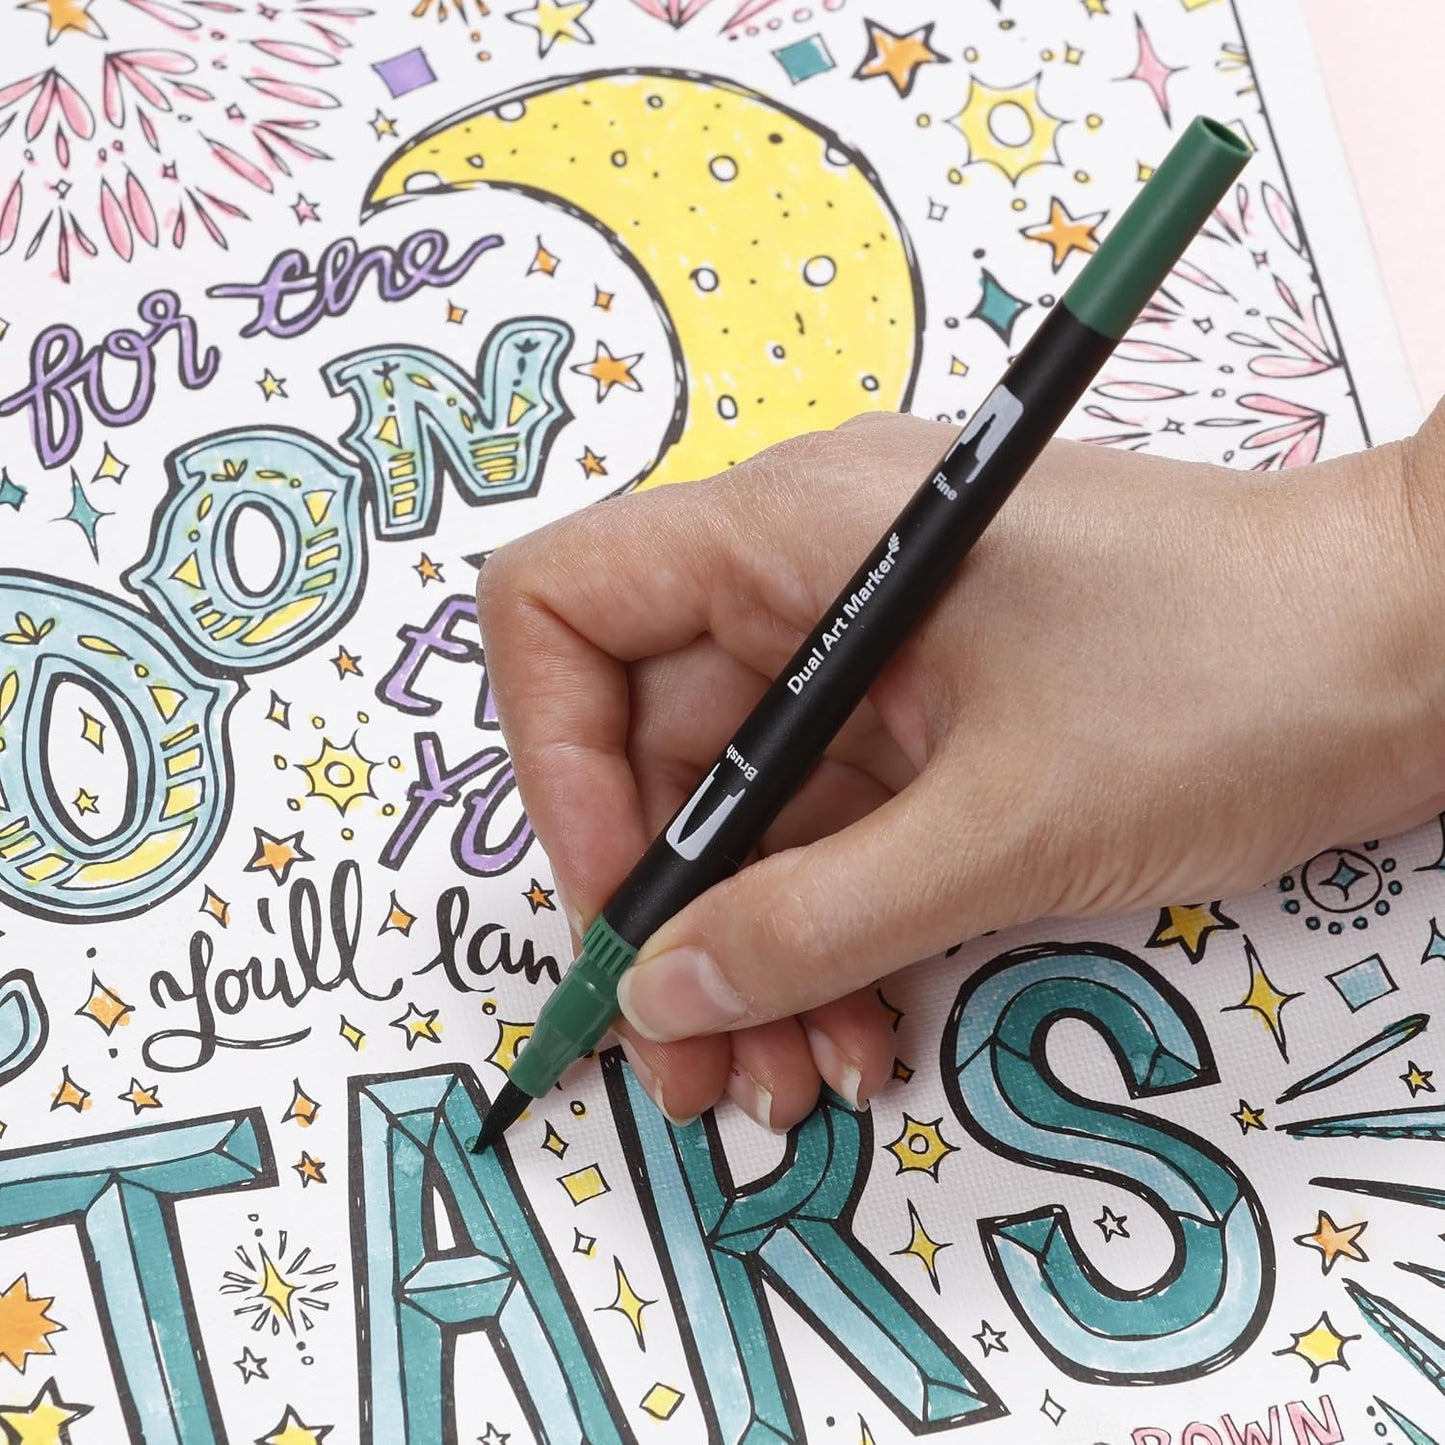 for the
OON
E
YO
you'll lan
TARS
Fine
Dual Art Marker
Brush
ROWN